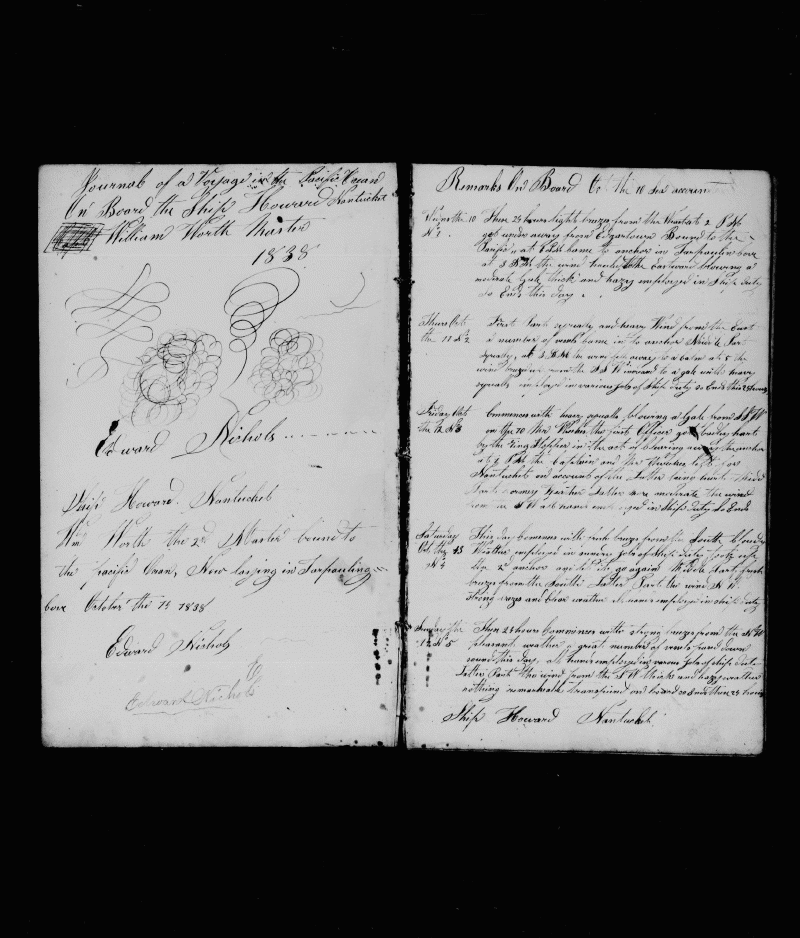 Journal of a Voyage in the Pacific Ocean
On Board the Ship Howard Nantucket
William Worth Master
1838
Edward Nichols
Ship Howard. Nantucket
Wm Worth the 2d Master bound to
the pacific Ocean, Now laying in Tarpauling
cove October the 14 1838
Edward Nichols
E
Edward Nichols
Remarks On Board Oct the 10 Sea account
10 Thes 24 hours light breeze from the 2 P M
No 1. got under away from Edgartown Bound to the
Pacific at PM came to anchor in Tarpaulin Cove
at 3 the wind to the Eastward blowing a
moderate Gale thick and hazy employed in Ships duty
So Ends this day
Thurs Oct First Part squally and heavy Wind from the East
the 11 No 2 a number of came in to anchor
squally, at 3 P M the wind away to a calm at 5 the
wind from the S S W increased to a gale with heavy
squalls employed in various jobs of Ships duty So Ends this 24 hours
Friday Oct Commences with heavy squalls blowing a Gale from
the 12 No 3 on the Officer got badly hurt
by the Ring Stopper in the act of the anchor
at 4 P M the Captain and left for
Nantucket on account of the Latter being hurt Middle
Part stormy Weather Latter more moderate the wind
from W employed in Ships duty So Ends
Saturday This day Comences with fresh breeze from the South cloudy
Oct the 13 Weather employed in jobs of Ships duty
No 4 2d anchor and go again Middle Part fresh
breeze from the South Latter Part the wind N W
Strong and Clear weather employed in ship duty
Sunday the Thes 24 hours Commences with strong breeze from the N W
14 No 5 pleasant weather a great number of went down
sound this day, all hands employed in various jobs of ship duty
Latter Part the wind from the S W thick and hazy weather
nothing remarkable transpired on board so Ends these 24 hours
Ship Howard Nantucket.